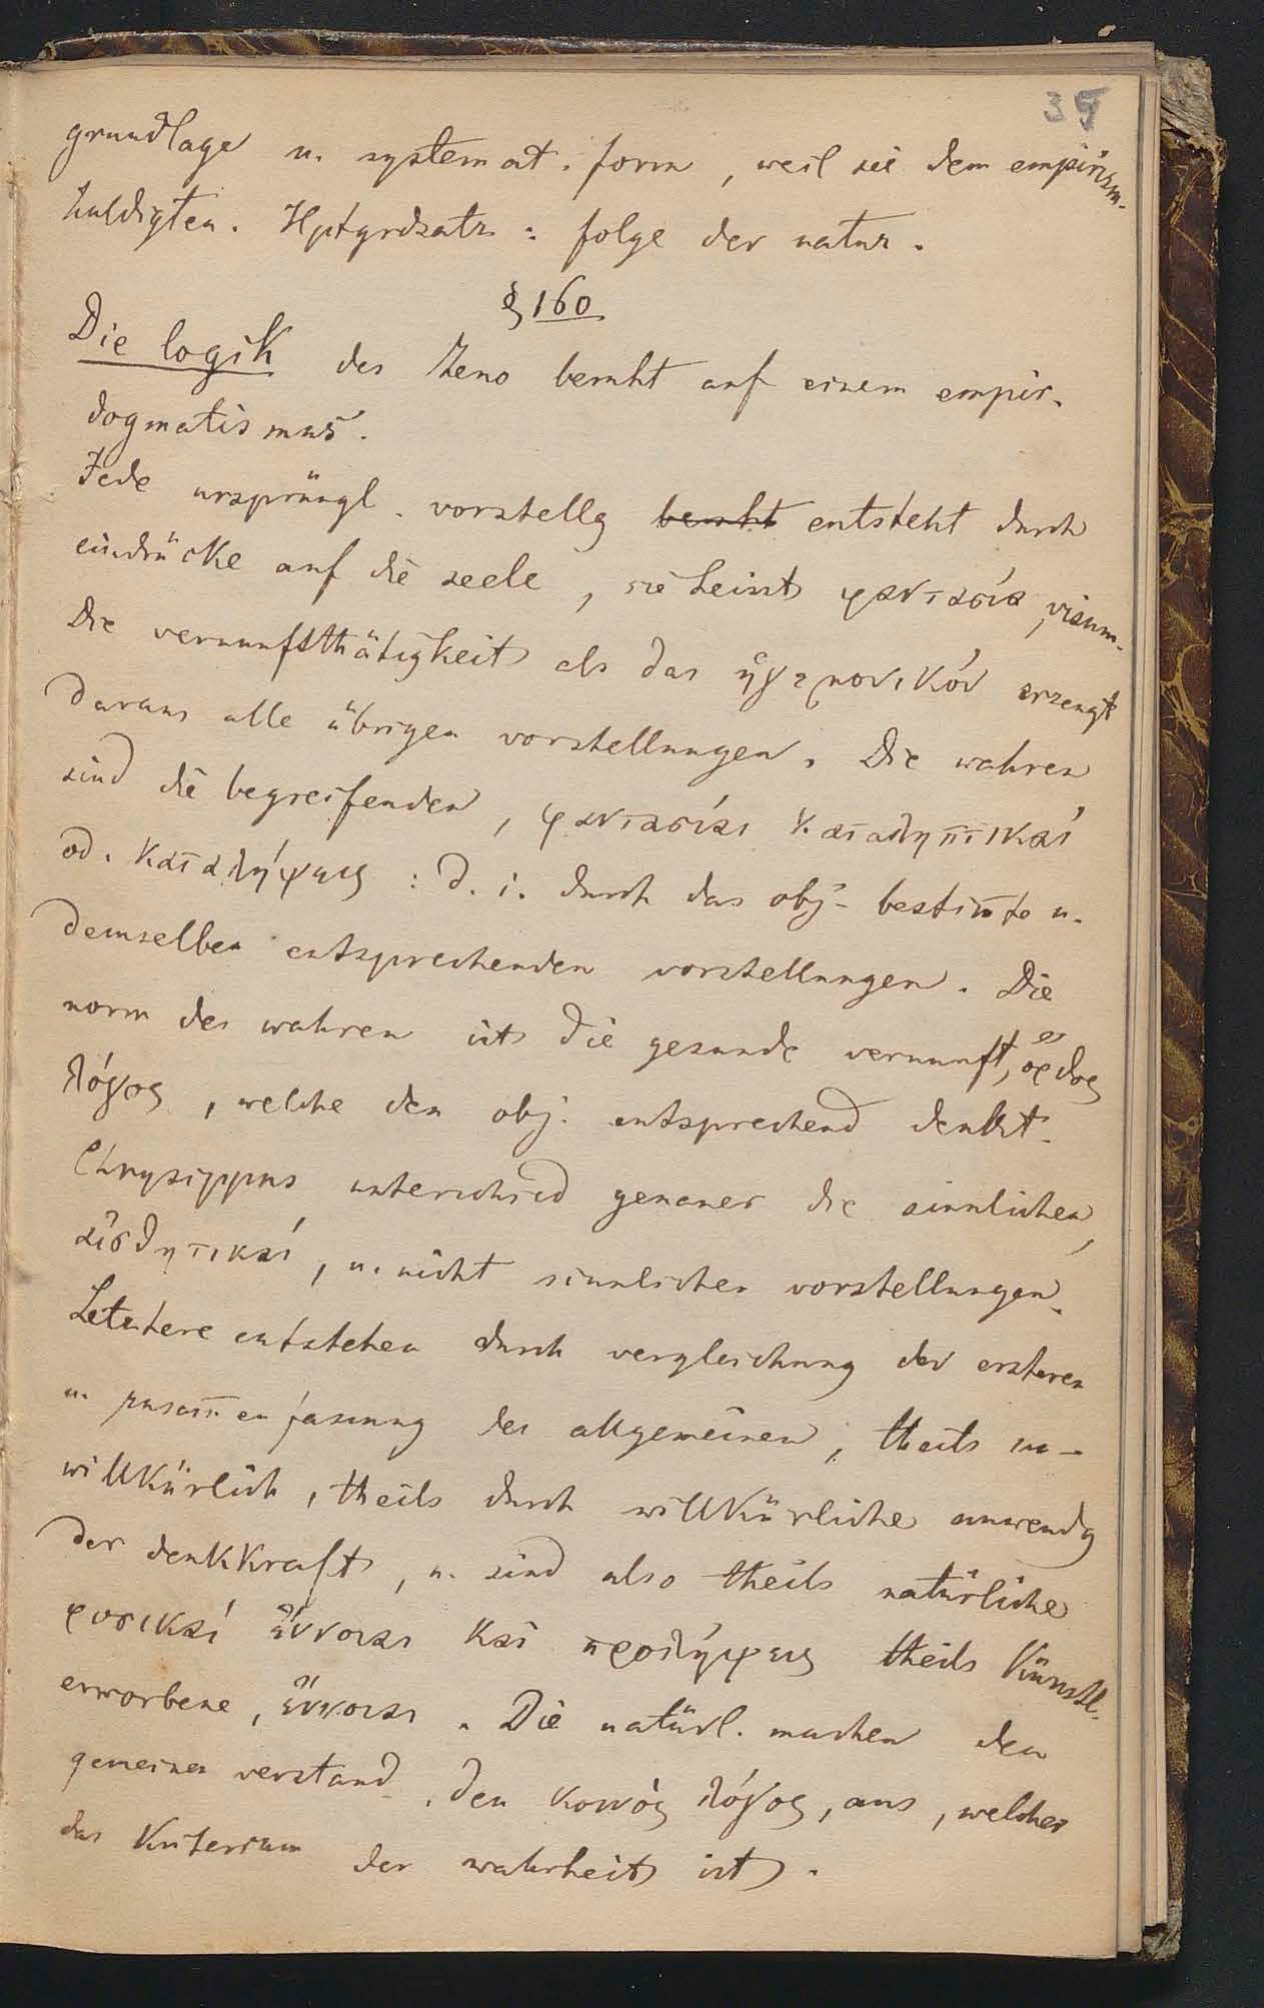 35
grundlage u. systemat. form, weil sie dem empirism.
huldigten. Hptgrdsatz: folge der natur.
§ 160
Die logik des Zeno beruht auf einem empir.
dogmatismus.
Jede ursprüngl. vorstellg beruht entsteht durch
eindrücke auf die seele, sie heisst φαντασία, visum.
Die vernunftthätigkeit als das ἡγεμονικόν erzeugt
daraus alle übrigen vorstellungen. Die wahren
sind die begreifenden, φαντασίαι καταληπτικαί
od. καταλήψεις: d. i. durch das obj. bestim̄te u.
demselben entsprechenden vorstellungen. Die
norm des wahren ist die gesunde vernunft, ὀρθος
λόγος, welche den obj. entsprechend denkt.
Chrysippus unterschied genauer die sinnlichen,
αἰσθητικαί, u. nicht sinnlichen vorstellungen.
Letztere entstehen durch vergleichung der ersteren
u. zusam̄enfassung des allgemeinen, theils un-
willkürlich, theils durch willkürliche anwendg
der denkkraft, u. sind also theils natürliche
φυσικαί ἔννοιαι καί προλήψεις theils künstl.
erworbene, ἔννοιαι. Die natürl. machen den
gemeinen verstand, den κοινὸς λόγος, aus, welcher
das Kriterium der wahrheit ist.